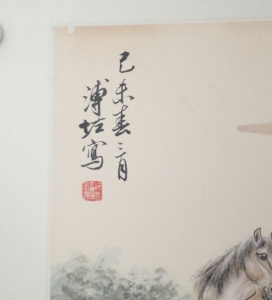 己未春三月
溥佐寫